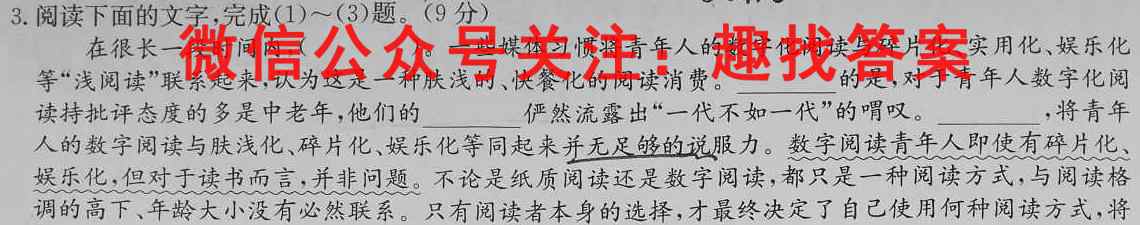 3.阅读下面的文字,完成(1)~(3)题。(9分)
在很长一段时间内,( )。一些媒体习惯将青年人的数字化阅读与碎片化、实用化、娱乐化
等“浅阅读”联系起来,认为这是一种肤浅的、快餐化的阅读消费。________的是,对于青年人数字化阅
读持批评态度的多是中老年,他们的________俨然流露出“一代不如一代”的喟叹。________,将青年
人的数字阅读与肤浅化、碎片化、娱乐化等同起来并无足够的说服力。数字阅读青年人即使有碎片化、
娱乐化,但对于读书而言,并非问题。不论是纸质阅读还是数字阅读,都只是一种阅读方式,与阅读格
调的高下、年龄大小没有必然联系。只有阅读者本身的选择,才最终决定了自己使用何种阅读方式,将
微信公众号关注:趣找答案